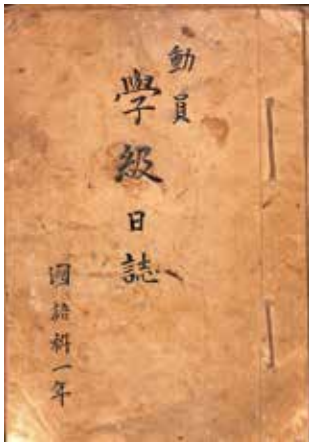 動員
學級日誌
國語科一年